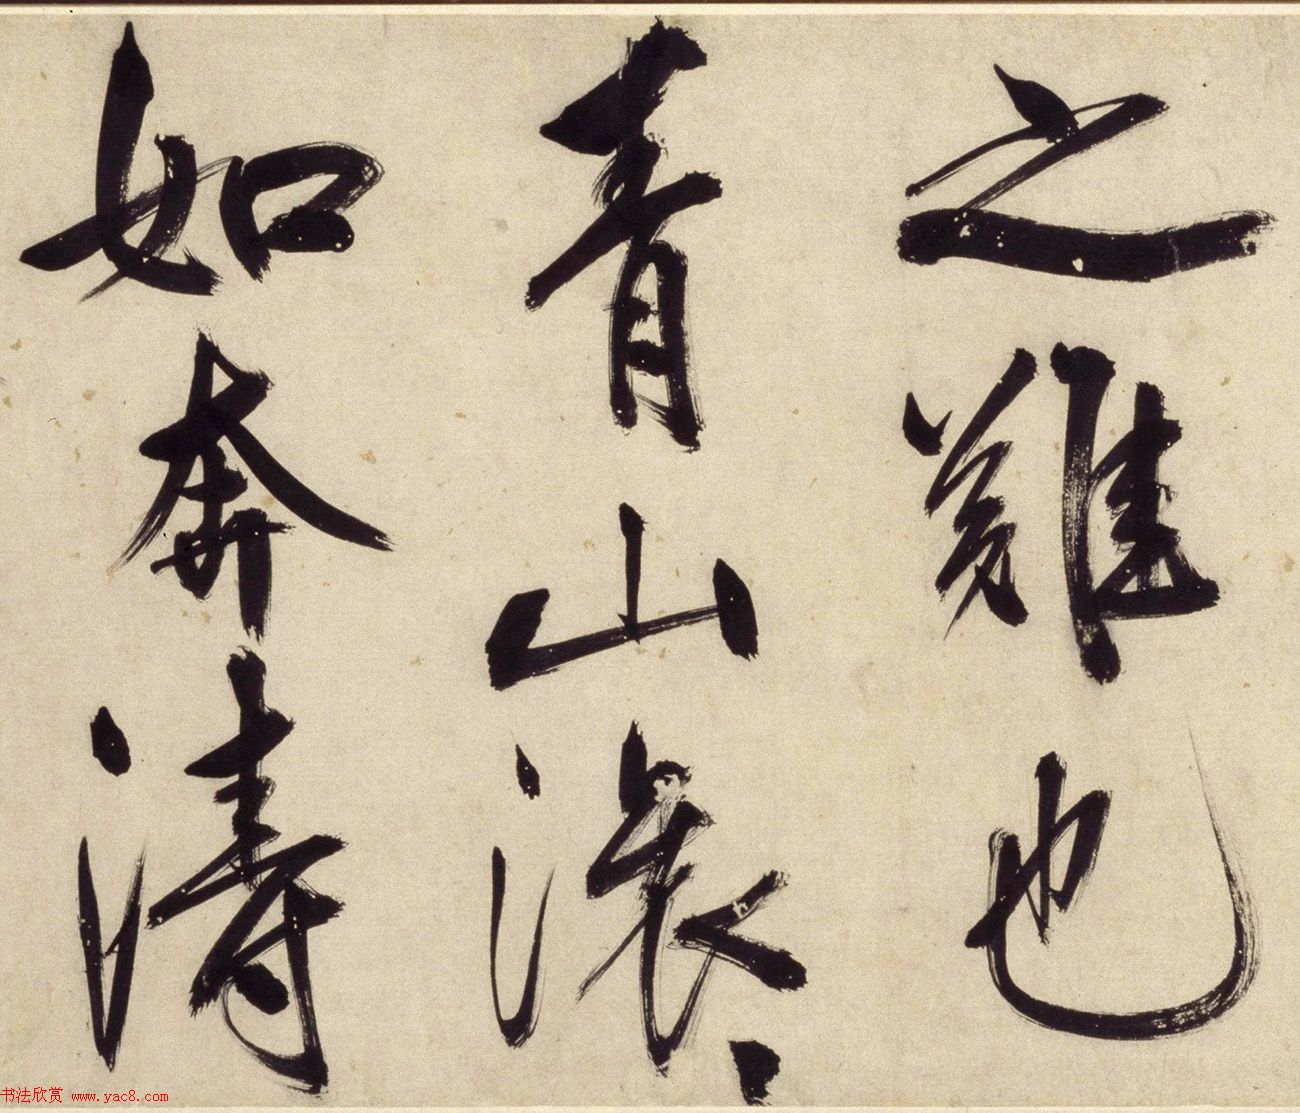 之難也
青山滚〻
如奔涛
书法欣赏 www.yac8.com